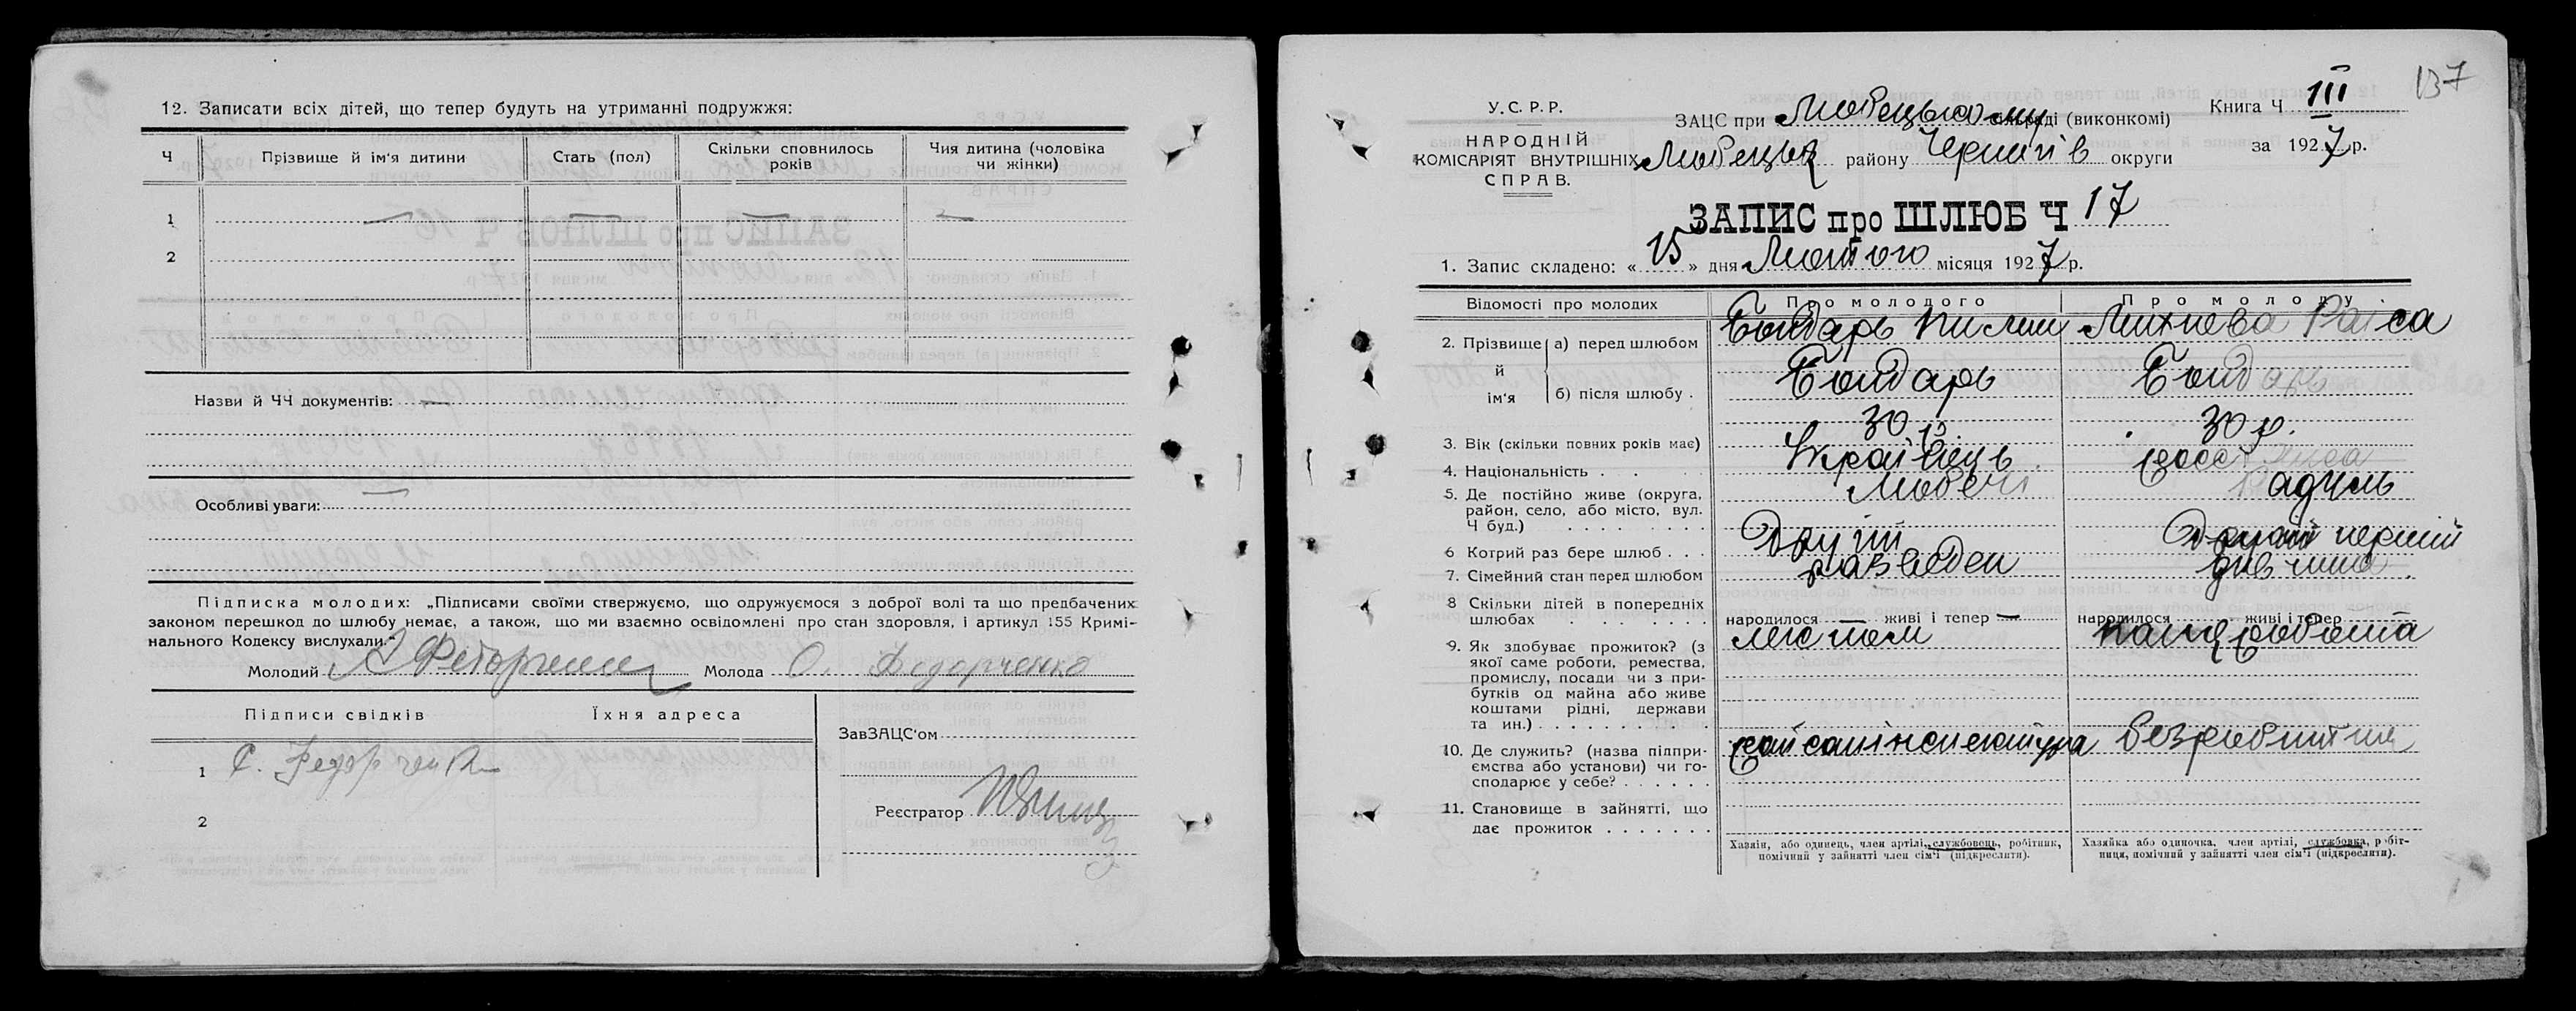 12. Записати всіх дітей, що тепер будуть на утриманні подружжя:
Ч
Прізвище й ім'я дитини
Стать (пол)
Скільки сповнилось років
Чия дитина (чоловіка чи жінки)
1
2
Назви й ЧЧ документів: —
Особливі уваги:
Підписка молодих: „Підписами своїми стверджуємо, що одружуємося з доброї волі та що предбачених
законом перешкод до шлюбу немає, а також, що ми взаємно освідомлені про стан здоровля, і артикул 155 Кримі-
нального Кодексу вислухали."
Молодий
Молода О. Федорченко
Підписи свідків
Їхня адреса
1 С. Федорченко
2
ЗавЗАЦС'ом
Реєстратор
137
У.С.Р.Р.
НАРОДНІЙ
КОМІСАРІЯТ ВНУТРІШНІХ
СПРАВ.
ЗАЦС при Любецькому сільраді (виконкомі)
Любецьк району Чернигів округи
Книга Ч III
за 1927 р.
ЗАПИС про ШЛЮБ Ч 17
1. Запис складено: « 15 » дня Лютого місяця 1927 р.
Відомості про молодих
Про молодого
Про молоду
2. Прізвище й ім'я
а) перед шлюбом
Бондарь Пилип
Михнева Раіса
б) після шлюбу .
Бондарь
Бондарь
3. Вік (скільки повних років має)
30 р.
30 р.
4. Національність . .
Українець
5. Де постійно живе (округа,
район, село, або місто, вул.
Ч буд.) . . . . . . . .
Любечі
Радуль
6 Котрий раз бере шлюб . . .
Другий
перший
7. Сімейний стан перед шлюбом
разведен
дивчина
8 Скільки дітей в попередніх
шлюбах . . . . . . .
народилося живі і тепер —
народилося живі і тепер
9. Як здобуває прожиток? (з
якої саме роботи, ремества,
промислу, посади чи з при-
бутків од майна або живе
коштами рідні, держави
та ин.) . . . . . . . .
канц робота
10. Де служить? (назва підпри-
ємства або установи) чи го-
сподарює у себе? . . . . . .
райсанінспектура
безробітня
11. Становище в зайнятті, що
дає прожиток . . . . . . .
Хазяін, або одинець, член артілі, службовець, робітник,
помічний у зайнятті член сім'ї (підкреслити).
Хазяйка або одиночка, член артілі, службовка, робіт-
ниця, помічний у зайнятті член сім'ї (підкреслити).